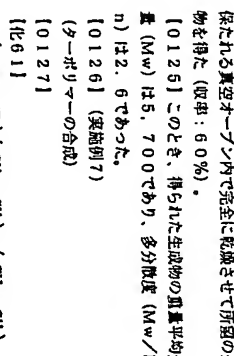 保たれる真空オーブン内で完全に乾燥させて所望の
物を得た（収率：６０％）。
【０１２５】このとき、得られた生成物の重量平均
量（Ｍｗ）は５．７００であり、多分散度（Ｍｗ／
ｎ）は２．６であった。
【０１２６】（実施例７）
（ターポリマーの合成）
【０１２７】
【化６１】